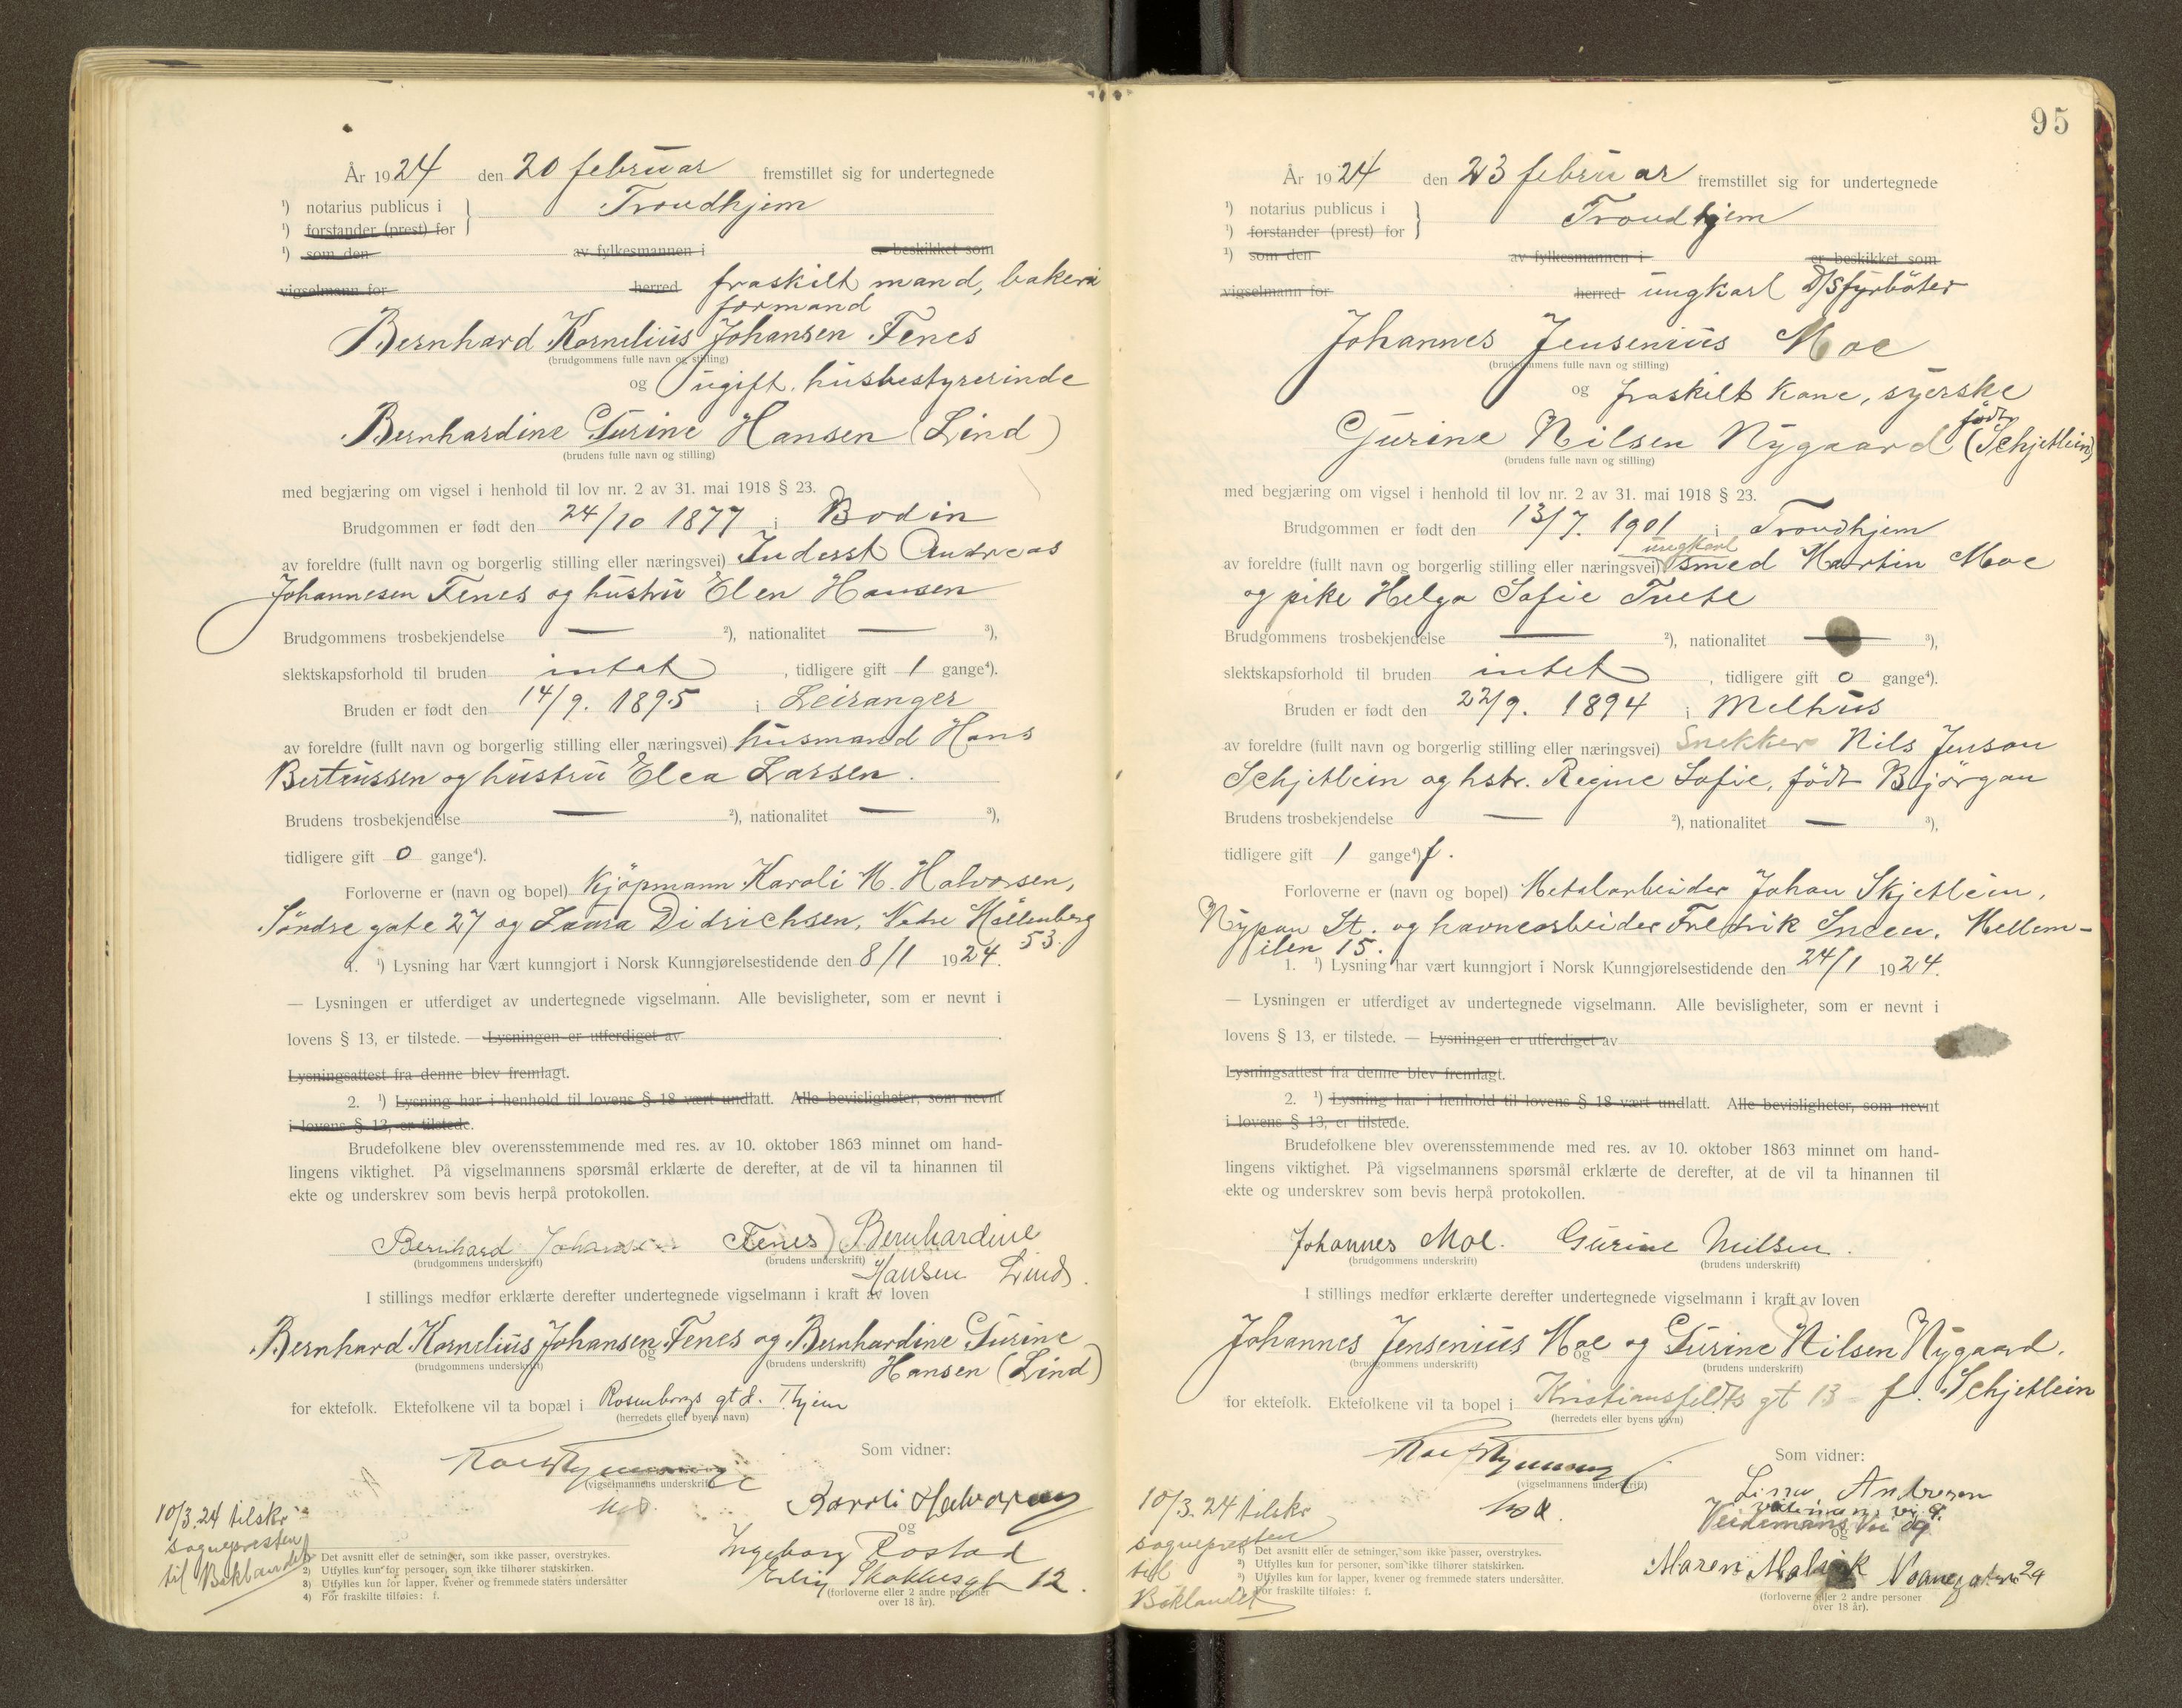 År 1924 den 20 februar fremstillet sig for undertegnede
¹) notarius publicus i } Trondhjem
¹) forstander (prest) for
¹) som den av fylkesmannen i er beskikket som
vigselmann for herred fraskilt mand, bakeri
formand
Bernhard Kornelius Johansen Fenes
(brudgommens fulle navn og stilling)
og ugift. husbestyrerinde
Bernhardine Gurine Hansen (Lind)
(brudens fulle navn og stilling)
med begjæring om vigsel i henhold til lov nr. 2 av 31. mai 1918 § 23.
Brudgommen er født den 24/10 1877 i Bodin
av foreldre (fullt navn og borgerlig stilling eller næringsvei) Inderst Andreas
Johannesen Fenes og hustru Elen Hansen
Brudgommens trosbekjendelse — ²), nationalitet — ³),
slektskapsforhold til bruden intet, tidligere gift 1 gange⁴).
Bruden er født den 14/9. 1895 i Leiranger
av foreldre (fullt navn og borgerlig stilling eller næringsvei) husmand Hans
Bertinssen og hustru Elea Larsen.
Brudens trosbekjendelse — ²), nationalitet — ³),
tidligere gift 0 gange⁴).
Forloverne er (navn og bopel) Kjöpmann Karoli M. Halvorsen,
Söndre gate 27 og Laura Didrichsen, Nedre Möllenberg
53.
1. ¹) Lysning har vært kunngjort i Norsk Kunngjørelsestidende den 8/1 1924.
— Lysningen er utferdiget av undertegnede vigselmann. Alle bevisligheter, som er nevnt i
lovens § 13, er tilstede. — Lysningen er utferdiget av
Lysningsattest fra denne blev fremlagt.
2. ¹) Lysning har i henhold til lovens § 18 vært undlatt. Alle bevisligheter, som nevnt
i lovens § 13, er tilstede.
Brudefolkene blev overensstemmende med res. av 10. oktober 1863 minnet om hand-
lingens viktighet. På vigselmannens spørsmål erklærte de derefter, at de vil ta hinannen til
ekte og underskrev som bevis herpå protokollen.
Bernhard Johansen Fenes) Bernhardine
(brudgommens underskrift) (brudens underskrift)
Hansen Lind.
I stillings medfør erklærte derefter undertegnede vigselmann i kraft av loven
Bernhard Kornelius Johansen Fenes og Bernhardine Gurine
(brudgommens underskrift) og (brudens underskrift)
Hansen (Lind)
for ektefolk. Ektefolkene vil ta bopæl i Rosenborgs gt 8. Thjem
(herredets eller byens navn)
Som vidner:
(vigselmannens underskrift)
Karoli Halvorsen
og
Ingeborg Rostad
Erling Skakkesgt 12.
(forloverne eller 2 andre personer
over 18 år).
10/3.24 tilskr
sognepresten
til Baklandet
1) Det avsnitt eller de setninger, som ikke passer, overstrykes.
2) Utfylles kun for personer, som ikke tilhører statskirken.
3) Utfylles kun for lapper, kvener og fremmede staters undersåtter
4) For fraskilte tilføies: f.
95
År 1924 den 23 februar fremstillet sig for undertegnede
¹) notarius publicus i } Trondhjem
¹) forstander (prest) for
¹) som den av fylkesmannen i er beskikket som
vigselmann for herred ungkarl D/S fyrböter
Johannes Jensenius Moe
(brudgommens fulle navn og stilling)
og fraskilt kone, syerske
Gurine Nilsen Nygaard (født Schjetlein)
(brudens fulle navn og stilling)
med begjæring om vigsel i henhold til lov nr. 2 av 31. mai 1918 § 23.
Brudgommen er født den 13/7. 1901 i Trondhjem
ungkarl
av foreldre (fullt navn og borgerlig stilling eller næringsvei) smed Martin Moe
og pike Helga Sofie
Brudgommens trosbekjendelse — ²), nationalitet — ³),
slektskapsforhold til bruden intet, tidligere gift 0 gange⁴).
Bruden er født den 22/9. 1894 i Melhus
av foreldre (fullt navn og borgerlig stilling eller næringsvei) Snekker Nils Jenson
Schjetlein og hstr. Regine Sofie, född Björgan
Brudens trosbekjendelse — ²), nationalitet — ³),
tidligere gift 1 gange⁴) f.
Forloverne er (navn og bopel) Metalarbeider Johan Skjetlein,
Nypan St. og havnearbeider Fredrik Mellem-
ilen 15.
1. ¹) Lysning har vært kunngjort i Norsk Kunngjørelsestidende den 24/1 1924.
— Lysningen er utferdiget av undertegnede vigselmann. Alle bevisligheter, som er nevnt i
lovens § 13, er tilstede. — Lysningen er utferdiget av
Lysningsattest fra denne blev fremlagt.
2. ¹) Lysning har i henhold til lovens § 18 vært undlatt. Alle bevisligheter, som nevnt
i lovens § 13, er tilstede.
Brudefolkene blev overensstemmende med res. av 10. oktober 1863 minnet om hand-
lingens viktighet. På vigselmannens spørsmål erklærte de derefter, at de vil ta hinannen til
ekte og underskrev som bevis herpå protokollen.
Johannes Moe. Gurine Nilsen.
(brudgommens underskrift) (brudens underskrift)
I stillings medfør erklærte derefter undertegnede vigselmann i kraft av loven
Johannes Jensenius Moe og Gurine Nilsen Nygaard.
(brudgommens underskrift) og (brudens underskrift)
for ektefolk. Ektefolkene vil ta bopel i Kristiansfeldts gt 13 f. Schjetlein
(herredets eller byens navn)
Som vidner:
(vigselmannens underskrift)
Andresen
og
Maren
(forloverne eller 2 andre personer
over 18 år).
10/3.24 tilskr
sognepresten
til
Baklandet
¹) Det avsnitt eller de setninger, som ikke passer, overstrykes.
²) Utfylles kun for personer, som ikke tilhører statskirken.
³) Utfylles kun for lapper, kvener og fremmede staters undersåtter.
⁴) For fraskilte tilføies: f.